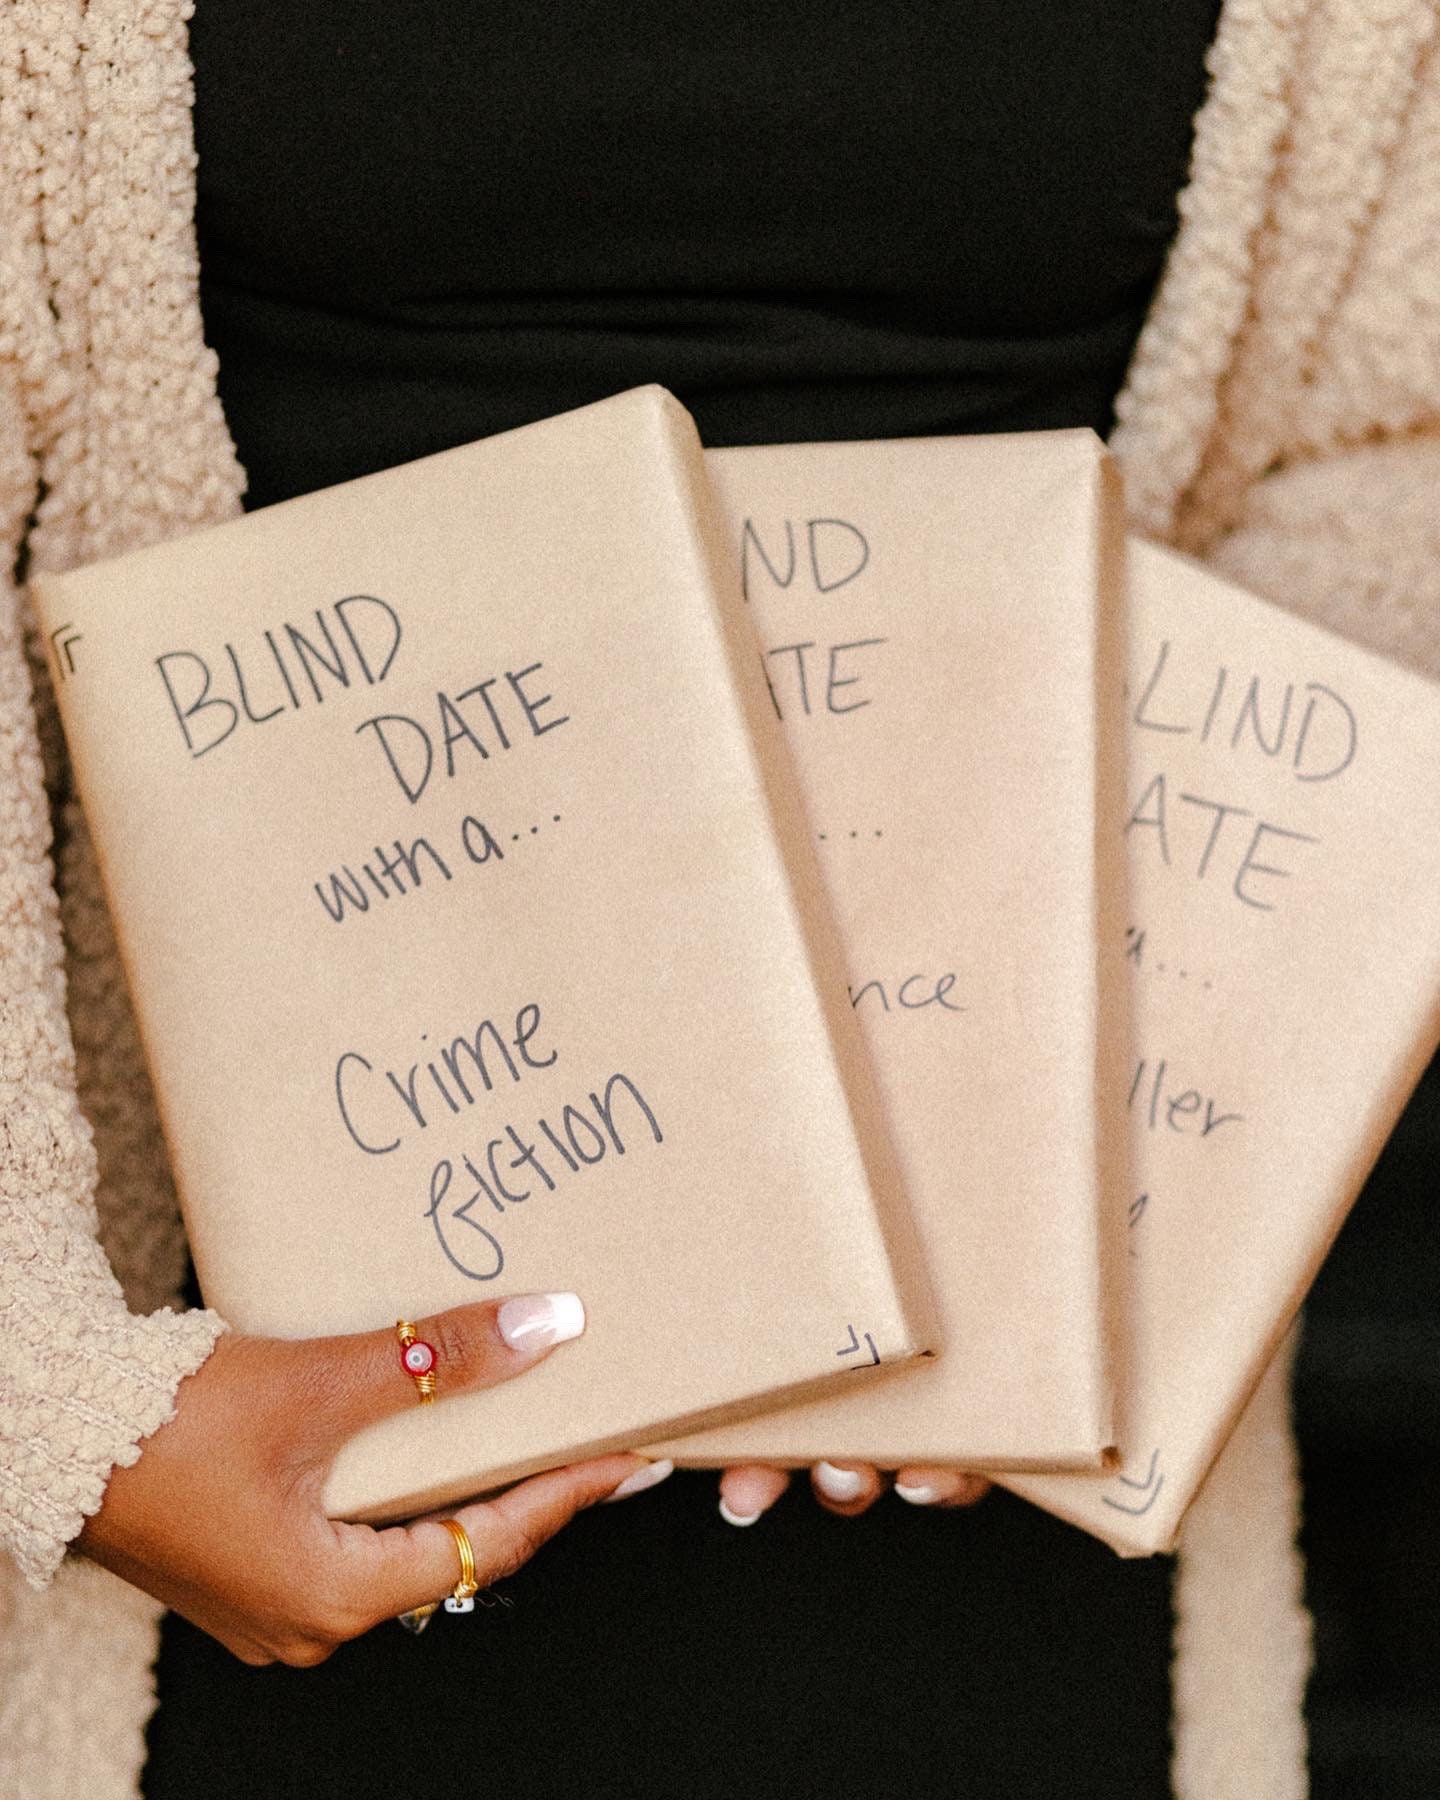 BLIND
DATE
with a...
Crime
fiction
ND
TE
...
nce
LIND
ATE
a...
ller